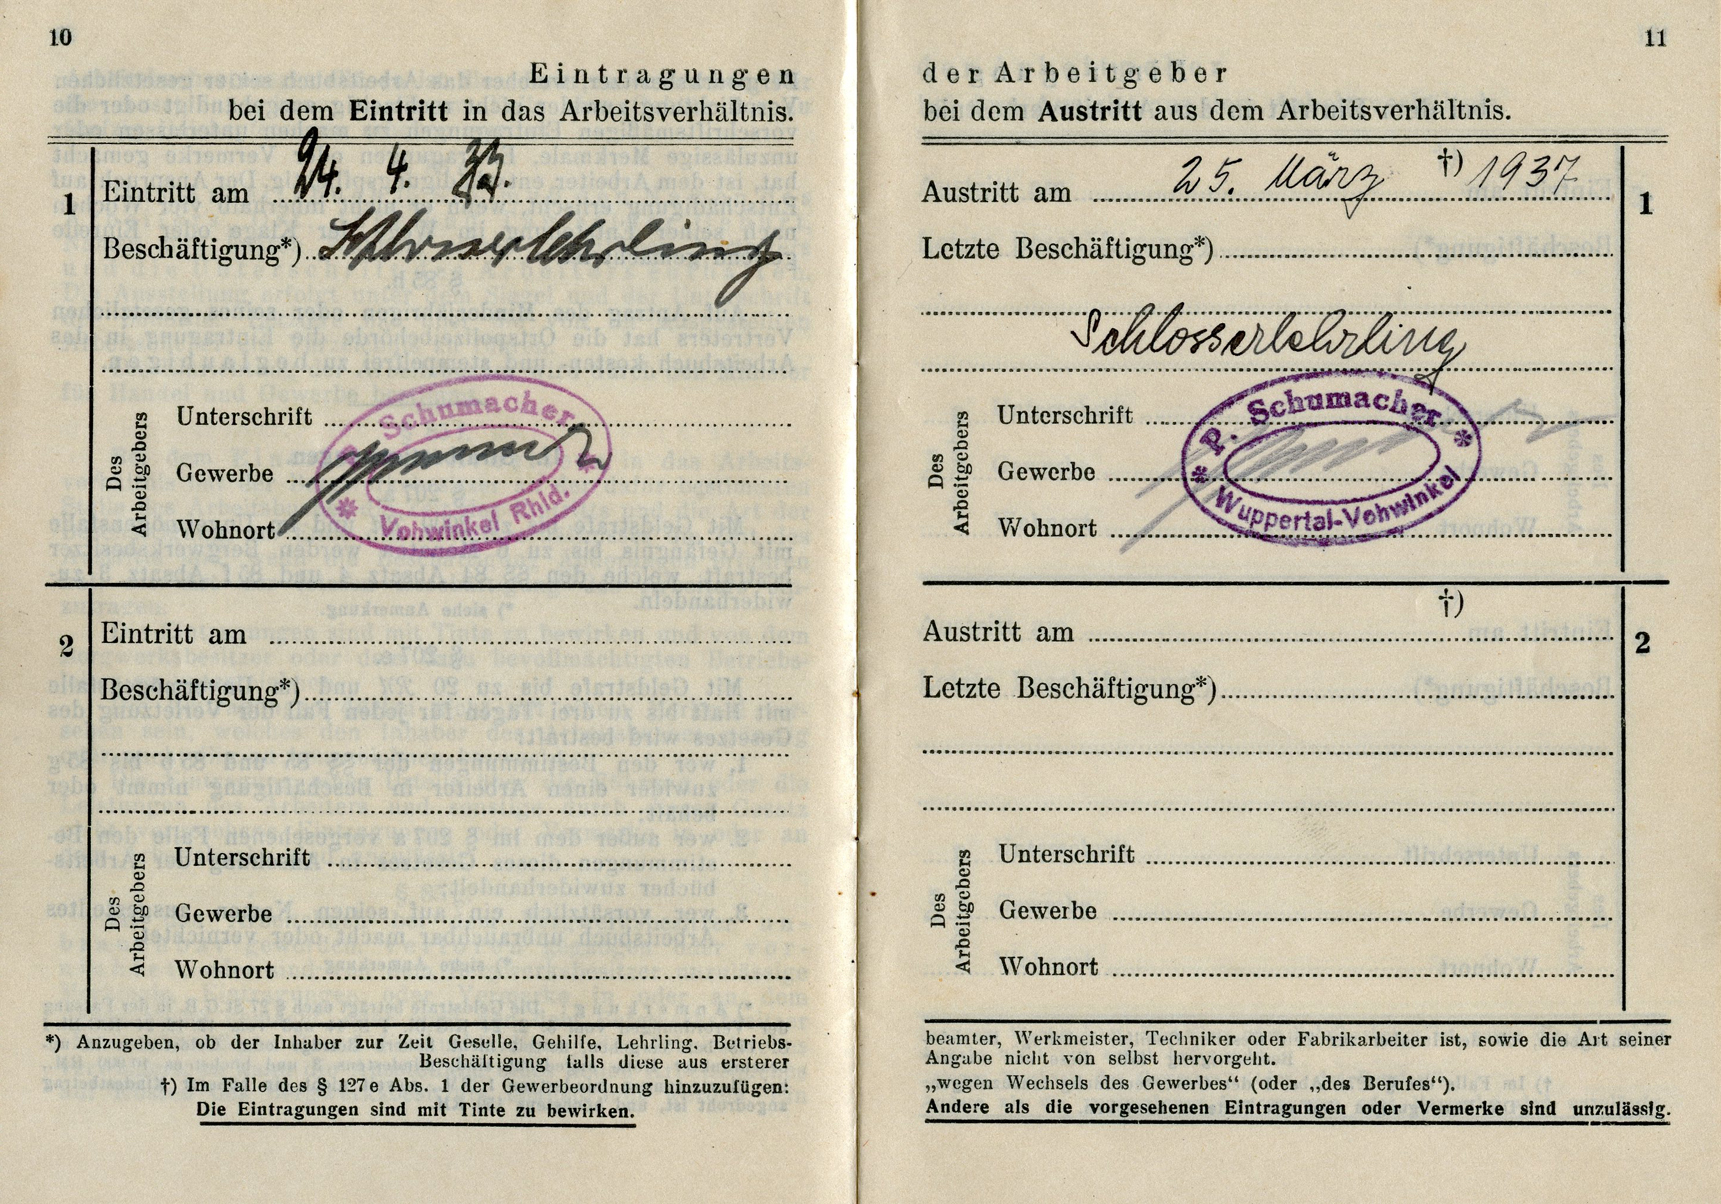 10
Eintragungen
bei dem Eintritt in das Arbeitsverhältnis.
1
Eintritt am 24. 4. 33.
Beschäftigung*) Schlosserlehrling
Des Arbeitgebers
Unterschrift
Gewerbe
Wohnort
Schumacher
Vohwinkel Rhld.
2
Eintritt am
Beschäftigung*)
Des Arbeitgebers
Unterschrift
Gewerbe
Wohnort
*) Anzugeben, ob der Inhaber zur Zeit Geselle, Gehilfe, Lehrling, Betriebs-
Beschäftigung falls diese aus ersterer
†) Im Falle des § 127e Abs. 1 der Gewerbeordnung hinzuzufügen:
Die Eintragungen sind mit Tinte zu bewirken.
11
der Arbeitgeber
bei dem Austritt aus dem Arbeitsverhältnis.
1
Austritt am 25. März †) 1937
Letzte Beschäftigung*)
Schlosserlehrling
Des Arbeitgebers
Unterschrift
Gewerbe
Wohnort
P. Schumacher
Wuppertal-Vohwinkel
2
†)
Austritt am
Letzte Beschäftigung*)
Des Arbeitgebers
Unterschrift
Gewerbe
Wohnort
beamter, Werkmeister, Techniker oder Fabrikarbeiter ist, sowie die Art seiner
Angabe nicht von selbst hervorgeht.
„wegen Wechsels des Gewerbes“ (oder „des Berufes“).
Andere als die vorgesehenen Eintragungen oder Vermerke sind unzulässig.